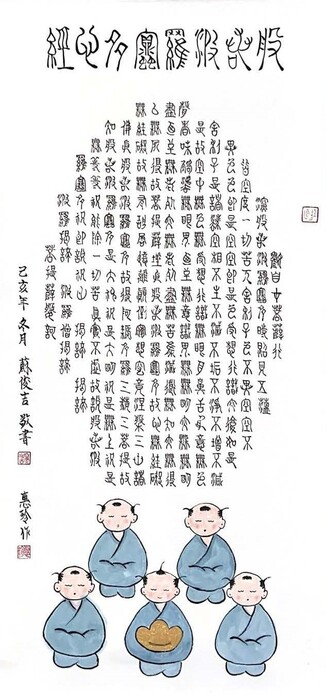 般若波羅蜜多心經
觀自在菩薩行
深般若波羅蜜多時照見五蘊
皆空度一切苦厄舍利子色不異空空不
異色色即是空空即是色受想行識亦復如是
舍利子是諸法空相不生不滅不垢不淨不增不減
是故空中無色無受想行識無眼耳鼻舌身意無色
聲香味觸法無眼界乃至無意識界無無明亦無無明
盡乃至無老死亦無老死盡無苦集滅道無智亦無得
以無所得故菩提薩埵依般若波羅蜜多故心無罣礙
無罣礙故無有恐怖遠離顛倒夢想究竟涅槃三世諸
佛依般若波羅蜜多故得阿耨多羅三藐三菩提故
知般若波羅蜜多是大神咒是大明咒是無上咒是
無等等咒能除一切苦真實不虛故說般若波
羅蜜多咒即說咒曰 揭諦 揭諦
波羅揭諦 波羅僧揭諦
菩提薩婆訶
己亥年冬月 蘇俊吉敬書
惠珍作